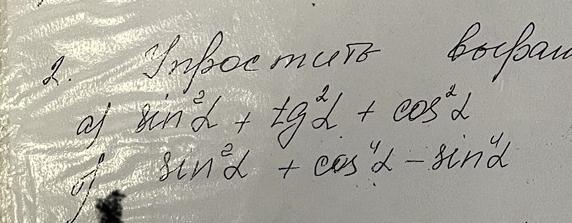 2. Упростить выраж
а) sin²α + tg²α + cos²α
sin²α + cos⁴α - sin⁴α